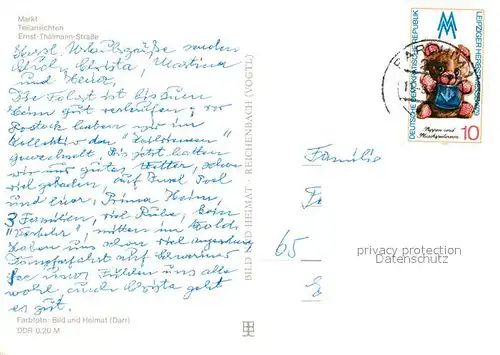 Markt
Teilansichten
Ernst-Thälmann-Straße
Herzl. Urlaubsgrüße senden
Euch, Christa, Martina
und Heinz.
Die Fahrt ist bis
gut verlaufen; vor
Rostock haben wir im
gewechselt. Bis jetzt hatten
wir nur gutes Wetter, schon
viel gebadet, auf Insel Poel
und hier, Prima Heim,
3 Familien, viel Ruhe, kein
"Verkehr", mitten im Wald.
Haben uns schon viel angeschaut,
Dampferfahrt auf Schweriner
See usw. Fühlen uns alle
wohl, auch Christa geht
es gut.
Farbfoto: Bild und Heimat (Darr)
DDR 0,20 M
BILD UND HEIMAT · REICHENBACH (VOGTL)
DEUTSCHE DEMOKRATISCHE REPUBLIK
LEIPZIGER HERBSTMESSE
Puppen und
Plüschspielwaren
10
Familie
65
privacy protection
Datenschutz